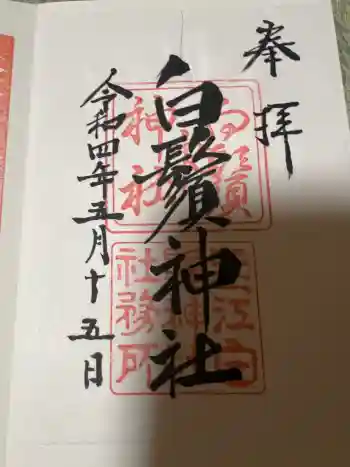 奉拝
白鬚神社
令和四年五月十五日
白鬚神社
社務所